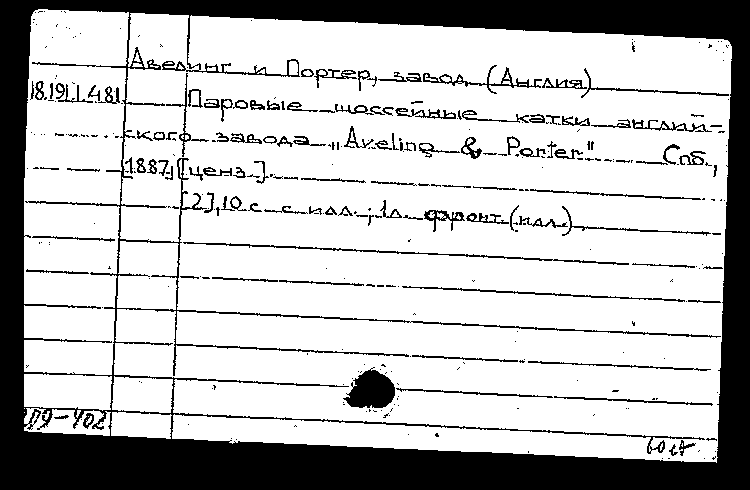 Авелинг и Портер, завод (Англия)
18.191.1.481 Паровые шоссейные катки англий-
ского завода „Aveling & Porter" Спб.,
[1887], [ценз].
[2], 10 с. с илл.; 1 л. фронт. (илл.).
-402